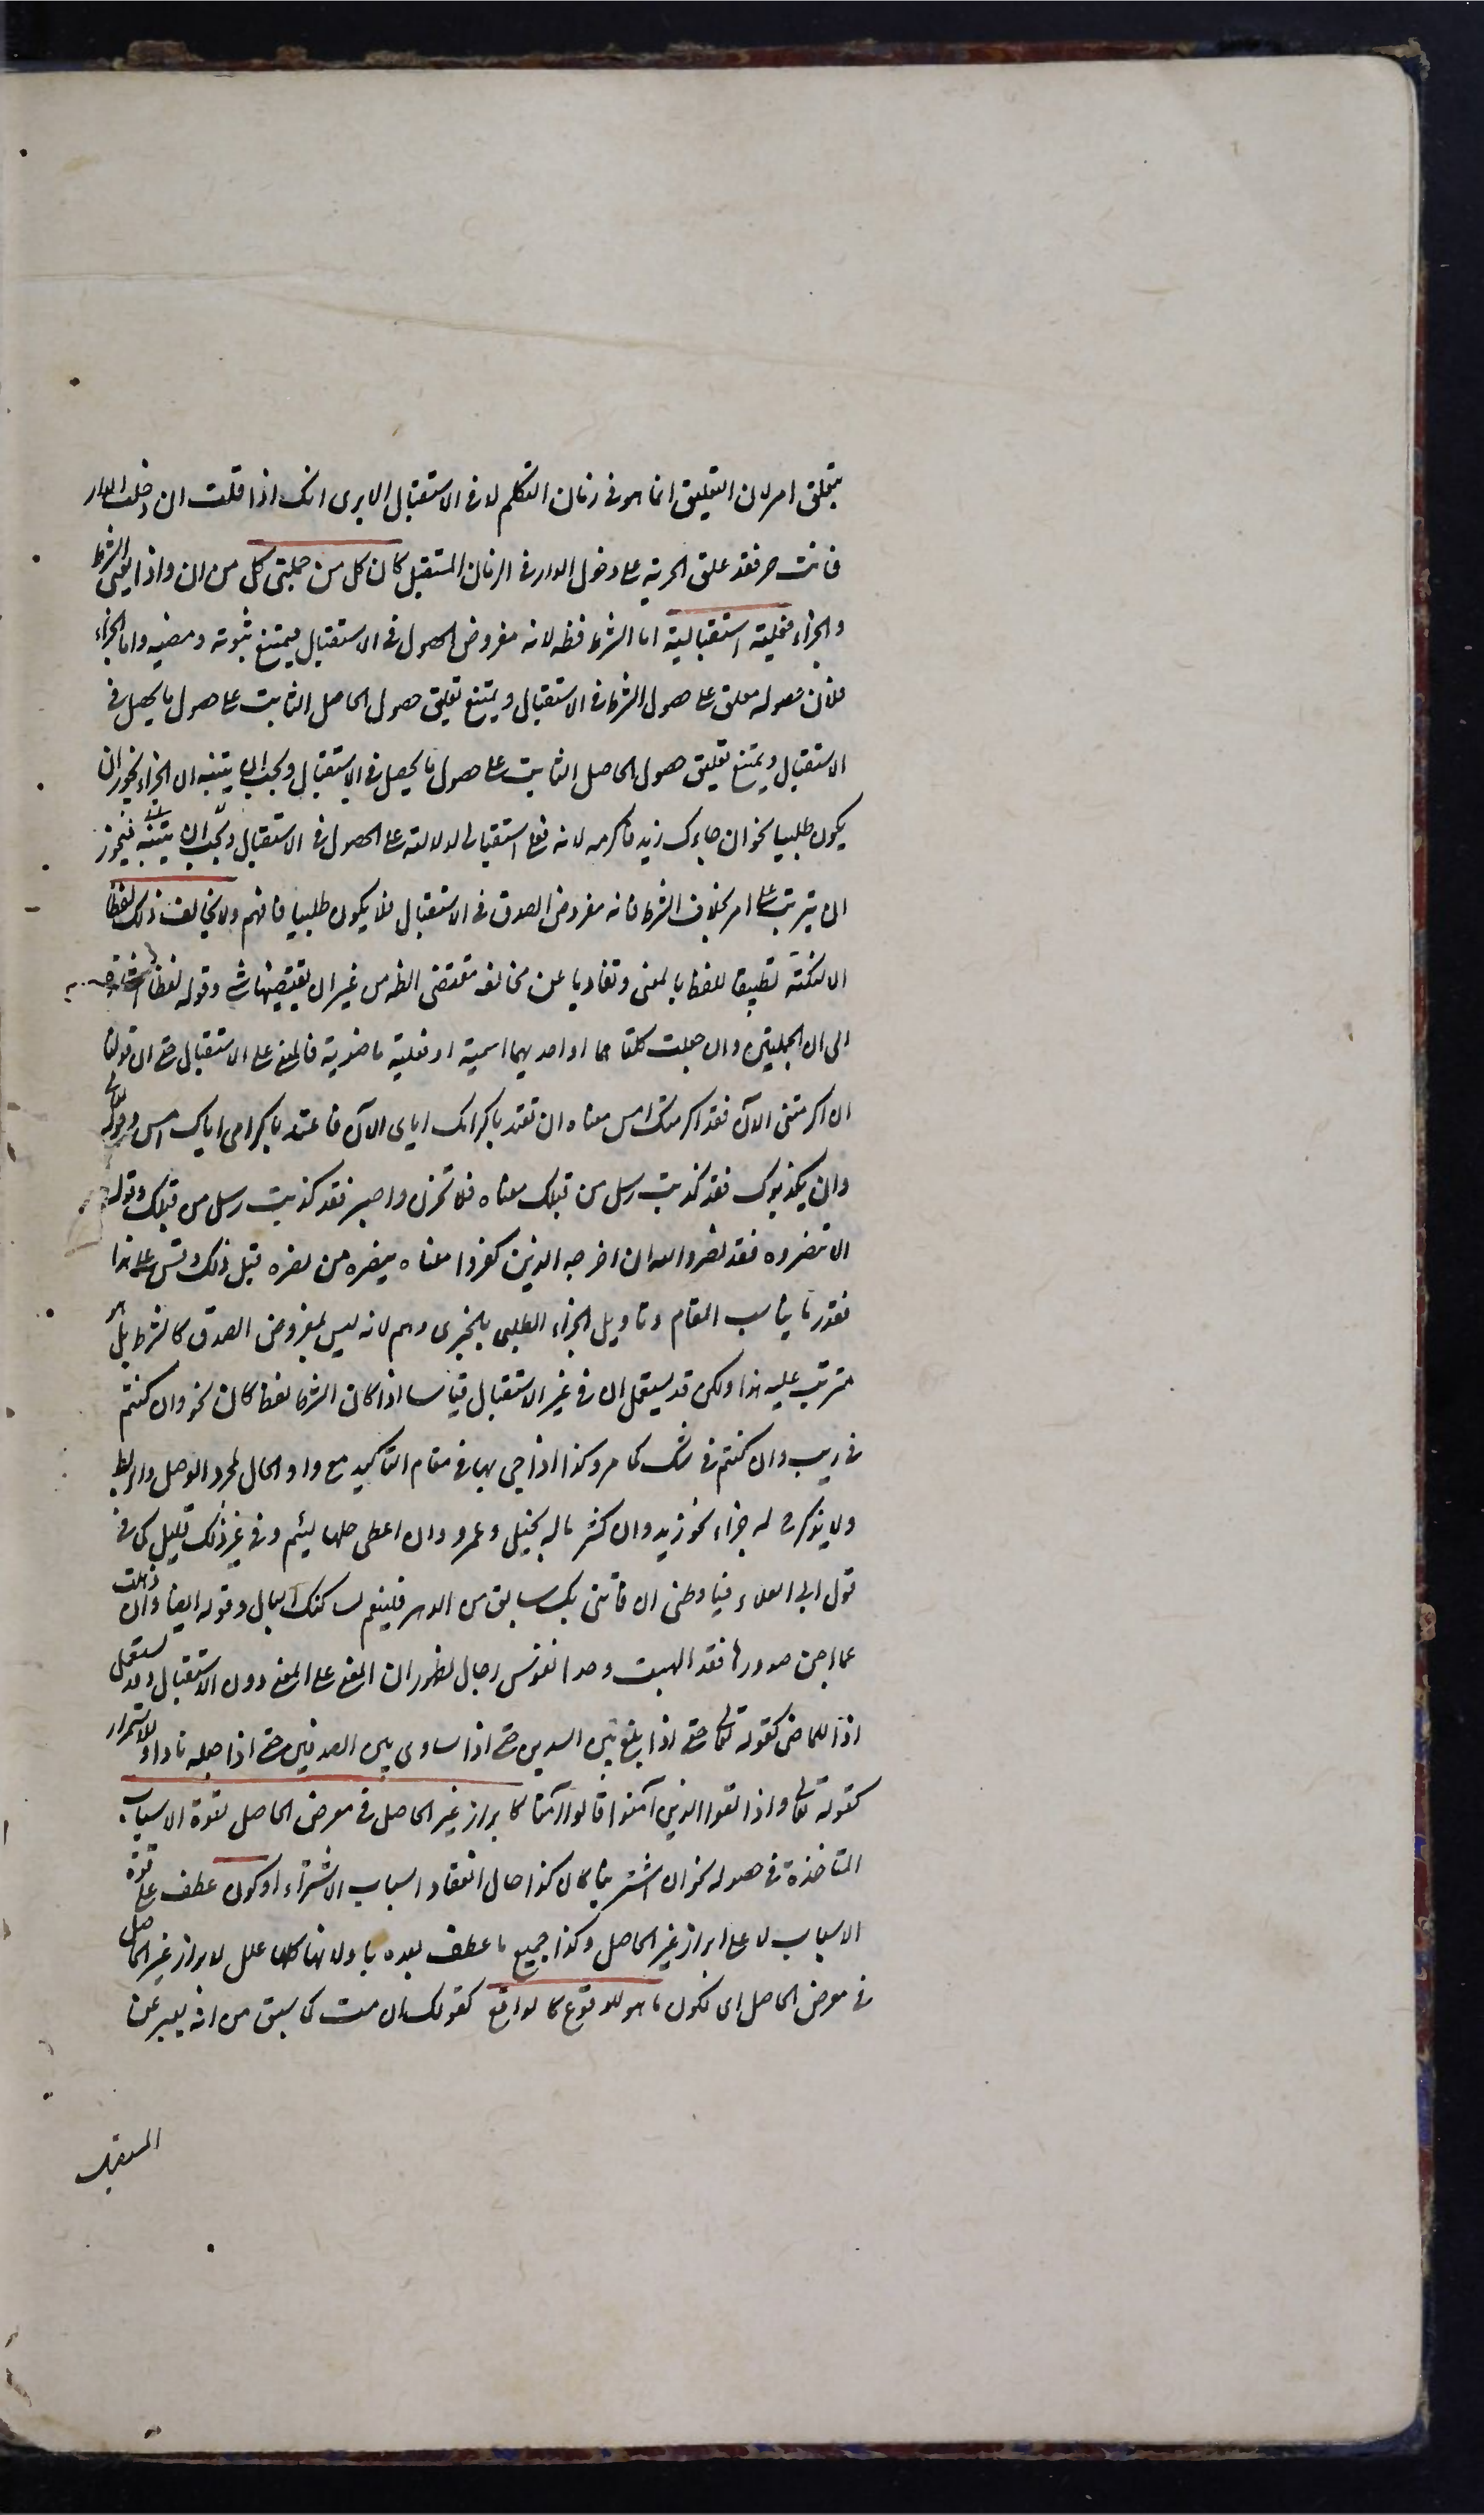 يتعلق امر لان التعليق انما هو فى زمان التكلم لا فى الاستقبال الا يرى انك اذا قلت ان دخلت الدار
فانت حر فقد علق الحرية على دخول الدار فى الزمان المستقبل كان كل من جملتى كل من ان واذا يعنى الشرط
والجزاء فعلية استقبالية اما الشرط فظ لانه مفروض الحصول فى الاستقبال فيمتنع ثبوته ومضيه واما الجزاء
فلان حصوله معلق على حصول الشرط فى الاستقبال ويمتنع تعليق حصول الحاصل الثابت على حصول ما يحصل فى
الاستقبال ويمتنع تعليق حصول الحاصل الثابت على حصول ما يحصل فى الاستقبال ويجب ان يتنبه ان الجزاء يجوز ان
يكون طلبيا نحو ان جاءك زيد فاكرمه لانه فعل استقبالى لدلالته على الحصول فى الاستقبال ويجب ان يتنبه فيجوز
ان يترتب على امر بخلاف الشرط فانه مفروض الصدق فى الاستقبال فلا يكون طلبيا فافهم ولا يخالف ذلك لفظا
الا لنكتة تطبيقا للفظ بالمعنى وتفاديا عن مخالفة مقتضى الظ من غير ان يقتضيها شئ وقوله لفظا اشارة
الى ان الجملتين وان جعلت كلتاهما او احديهما اسمية او فعلية ماضوية فالمعنى على الاستقبال حتى ان قولنا
ان اكرمتنى الآن فقد اكرمتك امس معناه ان تعتد باكرامك اياى الآن فاعتد باكرامى اياك امس وقوله تعالى
وان يكذبوك فقد كذبت رسل من قبلك معناه فلا تحزن واصبر فقد كذبت رسل من قبلك وقوله
الا تنصروه فقد نصره الله اذ اخرجه الذين كفروا معناه ينصره من نصره قبل ذلك وقس على هذا
فقدر ما يناسب المقام وتاويل الجزاء الطلبى بالخبرى وهم لانه ليس بمفروض الصدق كالشرط بل هو
مترتب عليه هذا ولكن قد يستعمل ان فى غير الاستقبال قياسا اذا كان الشرط لفظ كان نحو وان كنتم
فى ريب وان كنتم فى شك كما مر وكذا اذا جئ بها فى مقام التاكيد مع واو الحال لمجرد الوصل والربط
ولا يذكر ح له جزاء نحو زيد وان كثر ماله بخيل وعمرو وان اعطى جاها لئيم وفى غير ذلك قليل كما فى
قول ابى العلاء فيا وطنى ان فاتنى بك سابق من الدهر فلينعم لساكنك البال وقوله ايضا وان ذهلت
عما اجن صدورها فقد الهبت وجدا نفوس رجال لظهور ان المعنى على المضى دون الاستقبال وقد يستعمل
اذا للماضى كقوله تعالى حتى اذا بلغ بين السدين حتى اذا ساوى بين الصدفين حتى اذا جعله نارا وللاستمرار
كقوله تعالى واذا لقوا الذين آمنوا قالوا آمنا كابراز غير الحاصل فى معرض الحاصل لقوة الاسباب
المتاخذة فى حصوله نحو ان اشترينا كان كذا حال انعقاد اسباب الاشتراء او كون عطف على قوة
الاسباب لا على ابراز غير الحاصل وكذا جميع ما عطف بعده باو لانها كلها علل لابراز غير الحاصل
فى معرض الحاصل اى لكون ما هو للوقوع كالواقع كقولك ان مت كما سبق من انه يعبر عن
المستقبل